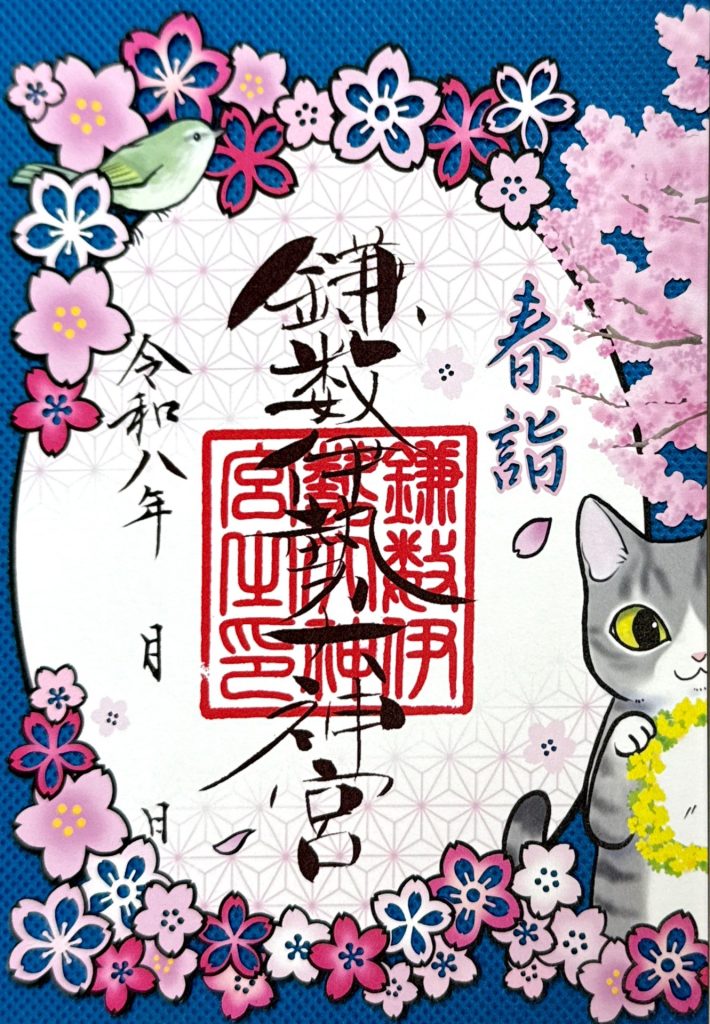 春詣
鎌数伊勢大神宮
鎌数伊
勢大神
宮之印
令和八年 月 日